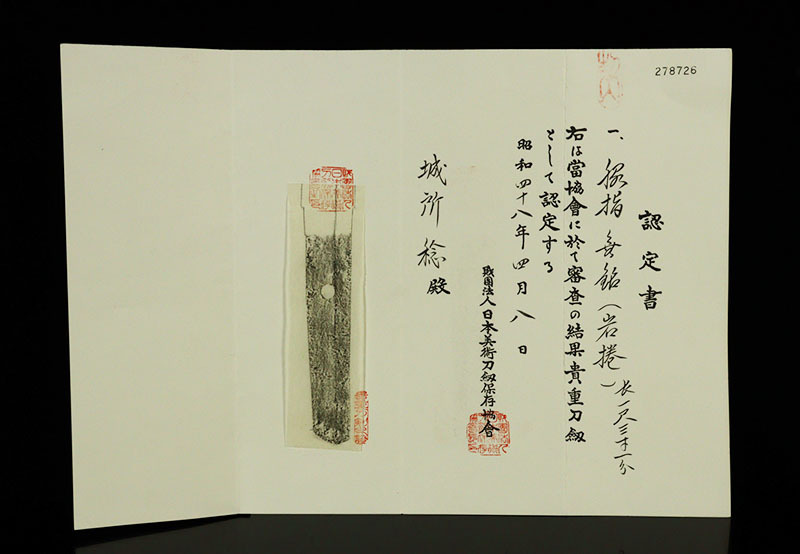 278726
認定書
一、脇指 無銘（岩捲）長一尺三寸一分
右は當協會に於て審査の結果貴重刀劔
として認定する
昭和四十八年四月八日
財團法人日本美術刀劔保存協會
城所稔殿